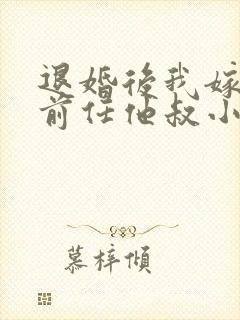 退婚後我嫁
前任他叔小
慕梓傾